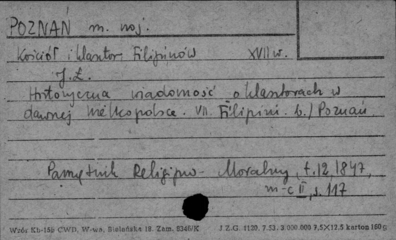 POZNAŃ m. woj.
Kościół i klasztor Filipinów XVII w.
J. Ł.
Historyczna wiadomość o klasztorach w
dawnej Wielkopolsce. VII. Filipini. b./ Poznań.
Pamiętnik Religijno-Moralny, t. 12, 1847,
m-c II, s. 117
Wzór Kb-15p CWD, W-wa, Bielańska 18. Zam. 5346/K J.Z.G. 1130. 7.53. 3 000 000 7,5×12,5 karton 160 g